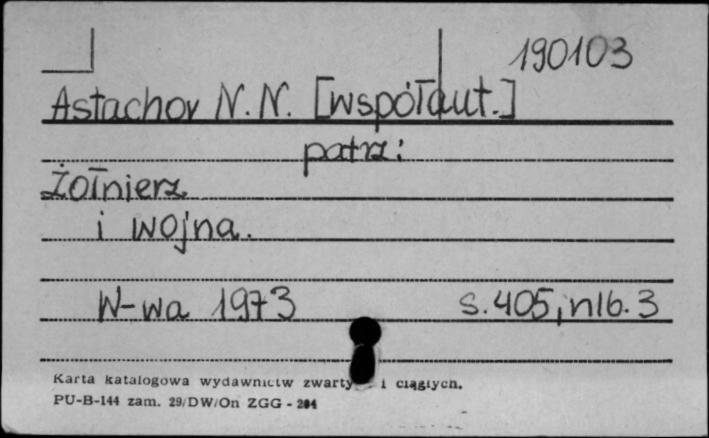 190103
Astachov N. N. [współaut.]
patrz:
Żołnierz
i wojna.
W-wa 1973 s. 405, nlb. 3
Karta katalogowa wydawnictw zwarty i ciągłych.
PU-B-144 zam. 29/DW/On ZGG - 204